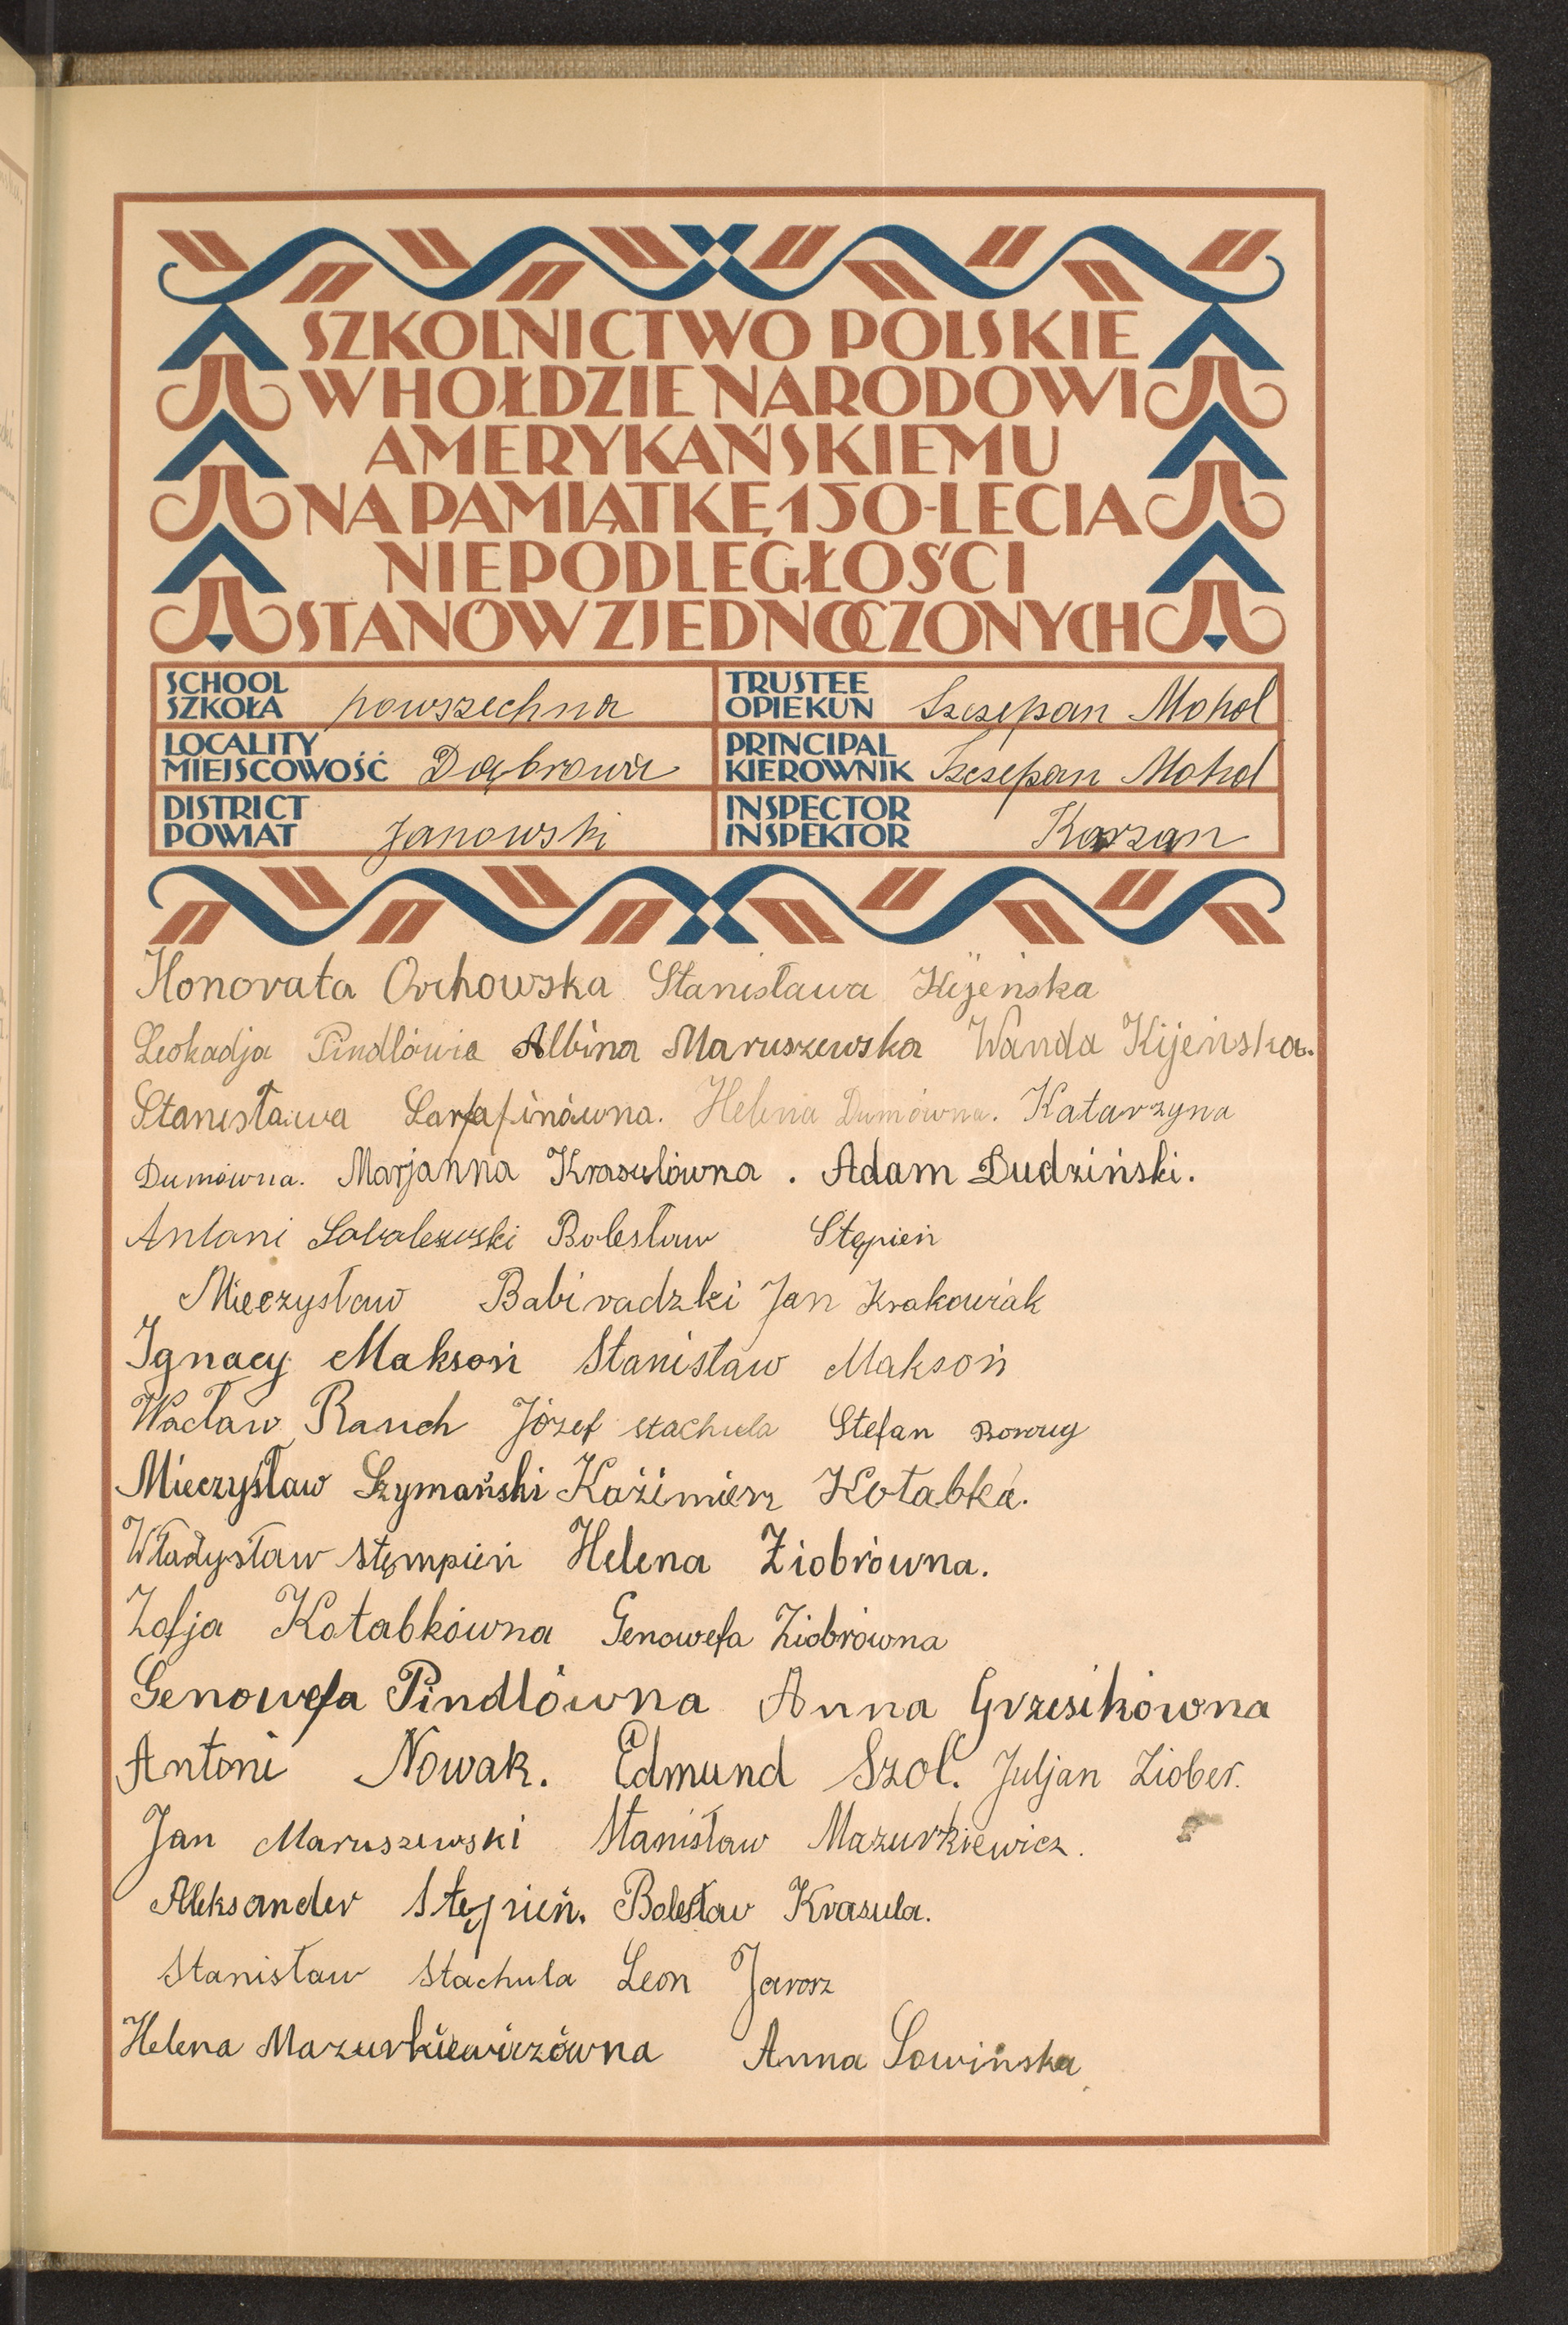 SZKOLNICTWO POLSKIE
W HOŁDZIE NARODOWI
AMERYKAŃSKIEMU
NA PAMIĄTKĘ 150-LECIA
NIEPODLEGŁOŚCI
STANÓW ZJEDNOCZONYCH
SCHOOL
SZKOŁA powszechna
TRUSTEE
OPIEKUN Szczepan Mohol
LOCALITY
MIEJSCOWOŚĆ Dąbrowa
PRINCIPAL
KIEROWNIK Szczepan Mohol
DISTRICT
POWIAT Janowski
INSPECTOR
INSPEKTOR Karzan
Honorata Orchowska Stanisława Kijeńska
Leokadja Albina Maruszewska Wanda Kijeńska.
Stanisława Helena Dumówna. Katarzyna
Dumówna. Marjanna Krasulówna. Adam Dudziński.
Antoni Bolesław Stępień
Mieczysław Babiradzki Jan Krakowiak
Ignacy Maksoń Stanisław Maksoń
Wacław Rauch Józef stachula Stefan
Mieczysław Szymański Kazimierz Kotabka.
Władysław stęmpień Helena Ziobrówna.
Zofja Kotabkówna Genowefa Ziobrówna
Genowefa Pindlówna Anna Grzesikówna
Antoni Nowak. Edmund Szol. Juljan Ziober.
Jan Maruszewski Stanisław Mazurkiewicz.
Aleksander Stępień. Bolesław Krasula.
Stanisław Stachula Leon Jarosz
Helena Mazurkiewiczówna Anna Sowińska